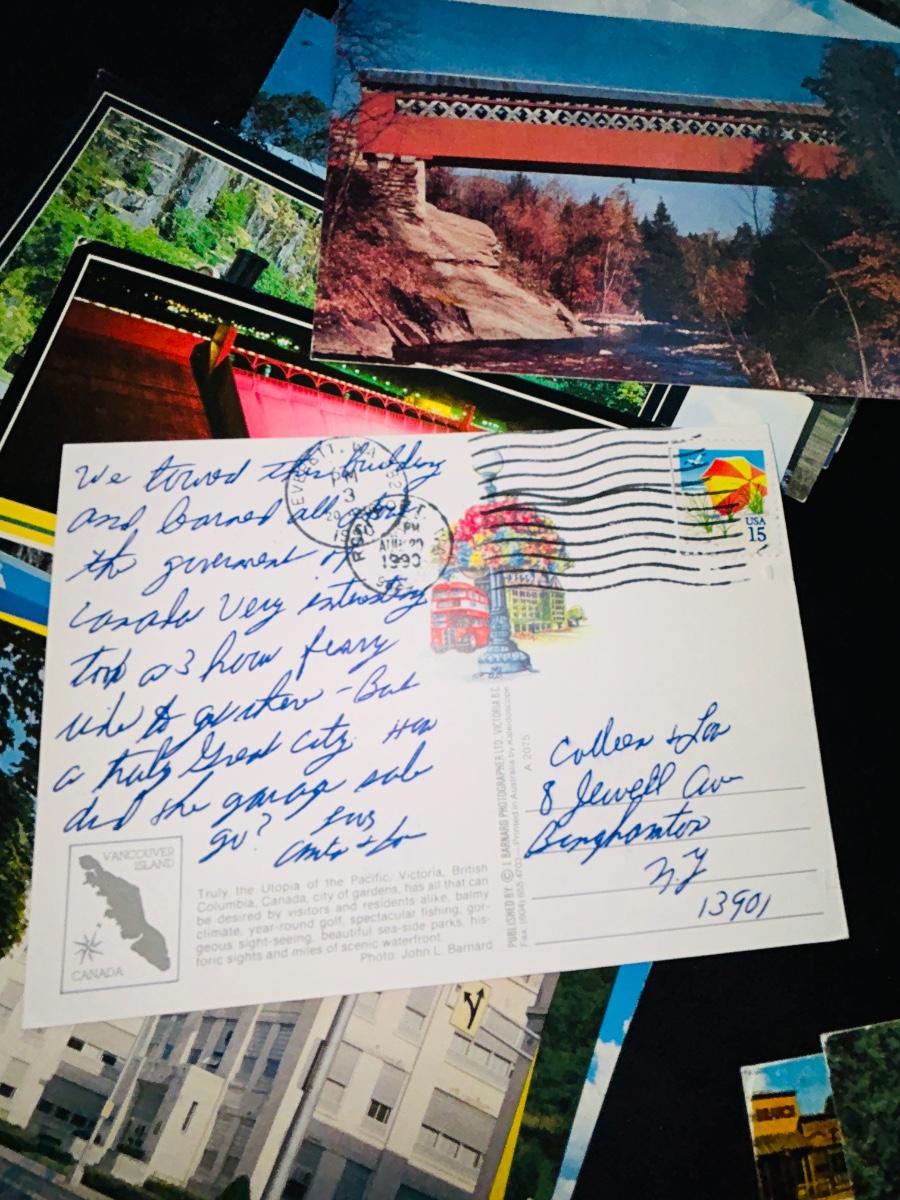 We toured this building
and learned all about
the goverment of
Canada Very intersting
took a 3 hour feary
ride to get there - But
a truly Great city. How
did the garage sale
go?
EVERETT, WA
PM
3
1990
PM
AUG 29
1990
USA
15
Colleen & Lou
8 Jewell Av
Binghamton
N.Y
13901
VANCOUVER
ISLAND
CANADA
Truly the Utopia of the Pacific, Victoria, British
Columbia, Canada, city of gardens, has all that can
be desired by visitors and residents alike, balmy
climate, year-round golf, spectacular fishing, gor-
geous sight-seeing, beautiful sea-side parks, his-
toric sights and miles of scenic waterfront.
Photo: John L. Barnard
PUBLISHED BY: © J. BARNARD PHOTOGRAPHER LTD. - VICTORIA B.C.
Fax: (604) 655 4703 - Printed in Australia by Kaleidoscope
A 2075